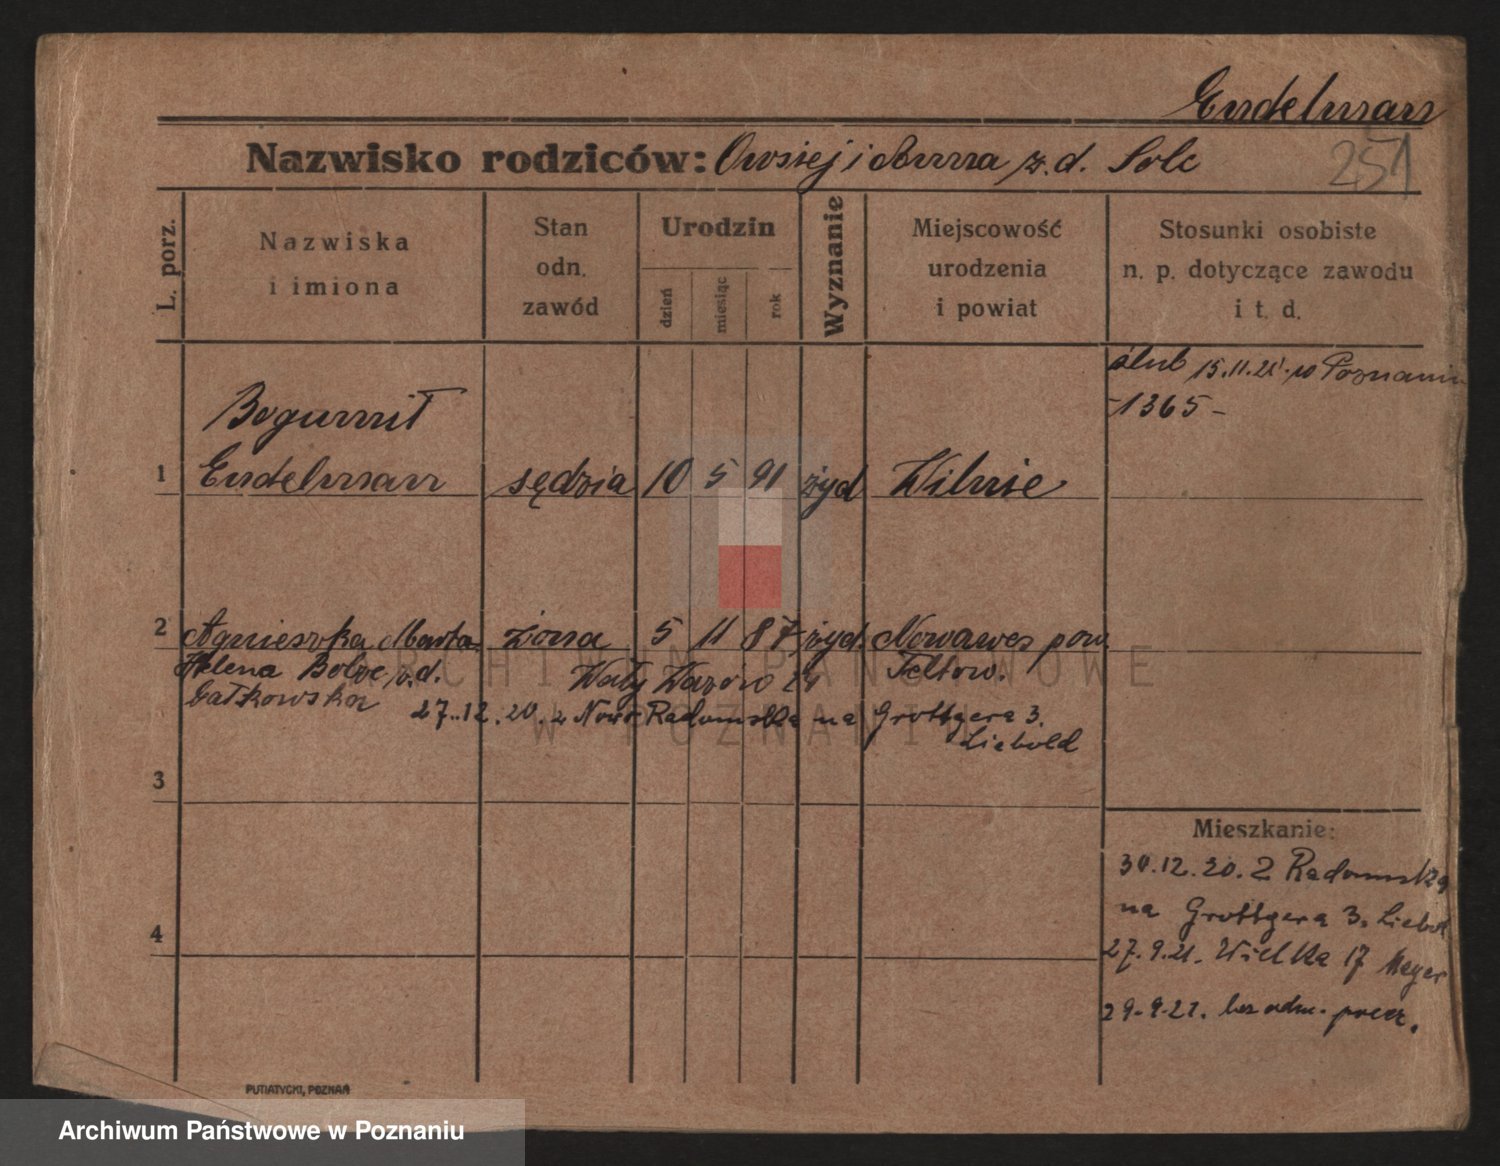 Endelman
Nazwisko rodziców: Owsiej i Anna z.d. Solc
251
L. porz.
Nazwiska i imiona
Stan odn. zawód
Urodzin
dzień
miesiąc
rok
Wyznanie
Miejscowość urodzenia i powiat
Stosunki osobiste n. p. dotyczące zawodu i t. d.
ślub 15.11.21. w Poznaniu
-1365-
Bogumił
1 Endelman sędzia 10 5 91 żyd Wilnie
2 Agnieszka Marta żona 5 11 87 żyd. Nowawes pow.
Helena z.d. Wały Teltow.
27.12.20. z Radomska na Grottgera 3.
Liebold
3
Mieszkanie:
30.12.20. z Radomska
na Grottgera 3. Liebol
4
27.9.21. Wielka 17 Mayer
29.9.21. bez adm.
PUTIATYCKI, POZNAŃ
ARCHIWUM PAŃSTWOWE
W POZNANIU
Archiwum Państwowe w Poznaniu